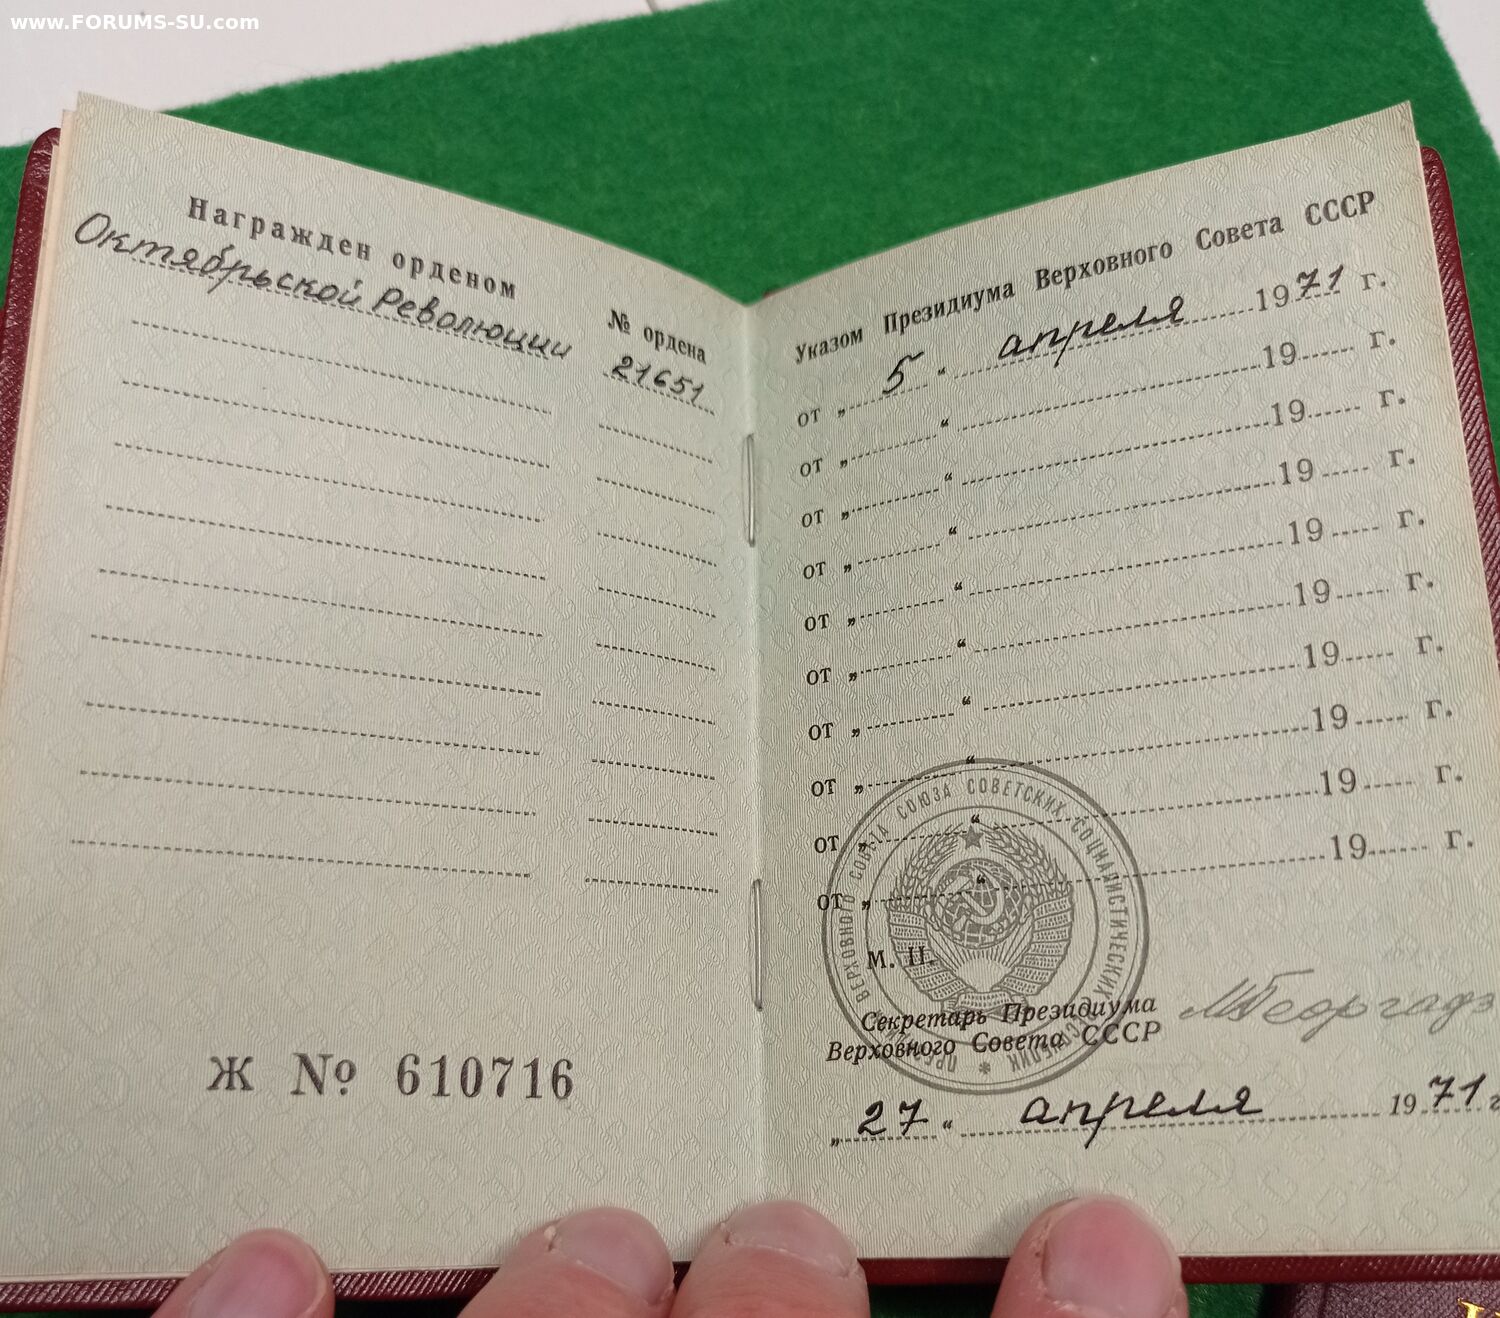 www.FORUMS-SU.com
Награжден орденом
Октябрьской Революции
№ ордена
21651
Ж № 610716
Указом Президиума Верховного Совета СССР
от „ 5 “ апреля 1971 г.
от „ “ 19 г.
от „ “ 19 г.
от „ “ 19 г.
от „ “ 19 г.
от „ “ 19 г.
от „ “ 19 г.
от „ “ 19 г.
от „ “ 19 г.
от „ “ 19 г.
ВЕРХОВНОГО СОВЕТА СОЮЗА СОВЕТСКИХ СОЦИАЛИСТИЧЕСКИХ
М. П.
Секретарь Президиума
Верховного Совета СССР
МГеоргадз
„ 27 “ апреля 1971 г